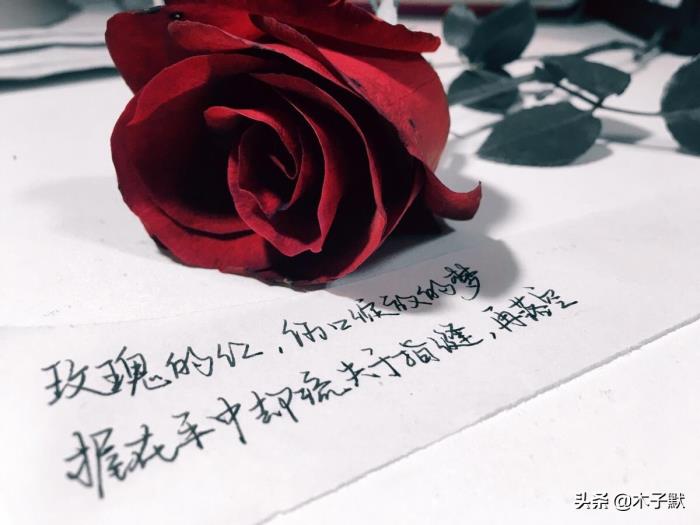 玫瑰的红，伤口绽放的梦
握在手中却流失于指缝，再落空
头条 @木子默